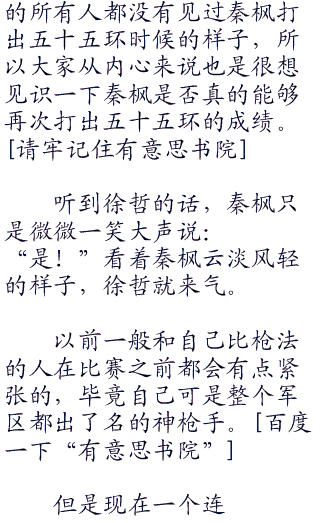 的所有人都没有见过秦枫打
出五十五环时候的样子，所
以大家从内心来说也是很想
见识一下秦枫是否真的能够
再次打出五十五环的成绩。
[请牢记住有意思书院]
听到徐哲的话，秦枫只
是微微一笑大声说：
“是！”看着秦枫云淡风轻
的样子，徐哲就来气。
以前一般和自己比枪法
的人在比赛之前都会有点紧
张的，毕竟自己可是整个军
区都出了名的神枪手。[百度
一下“有意思书院”]
但是现在一个连